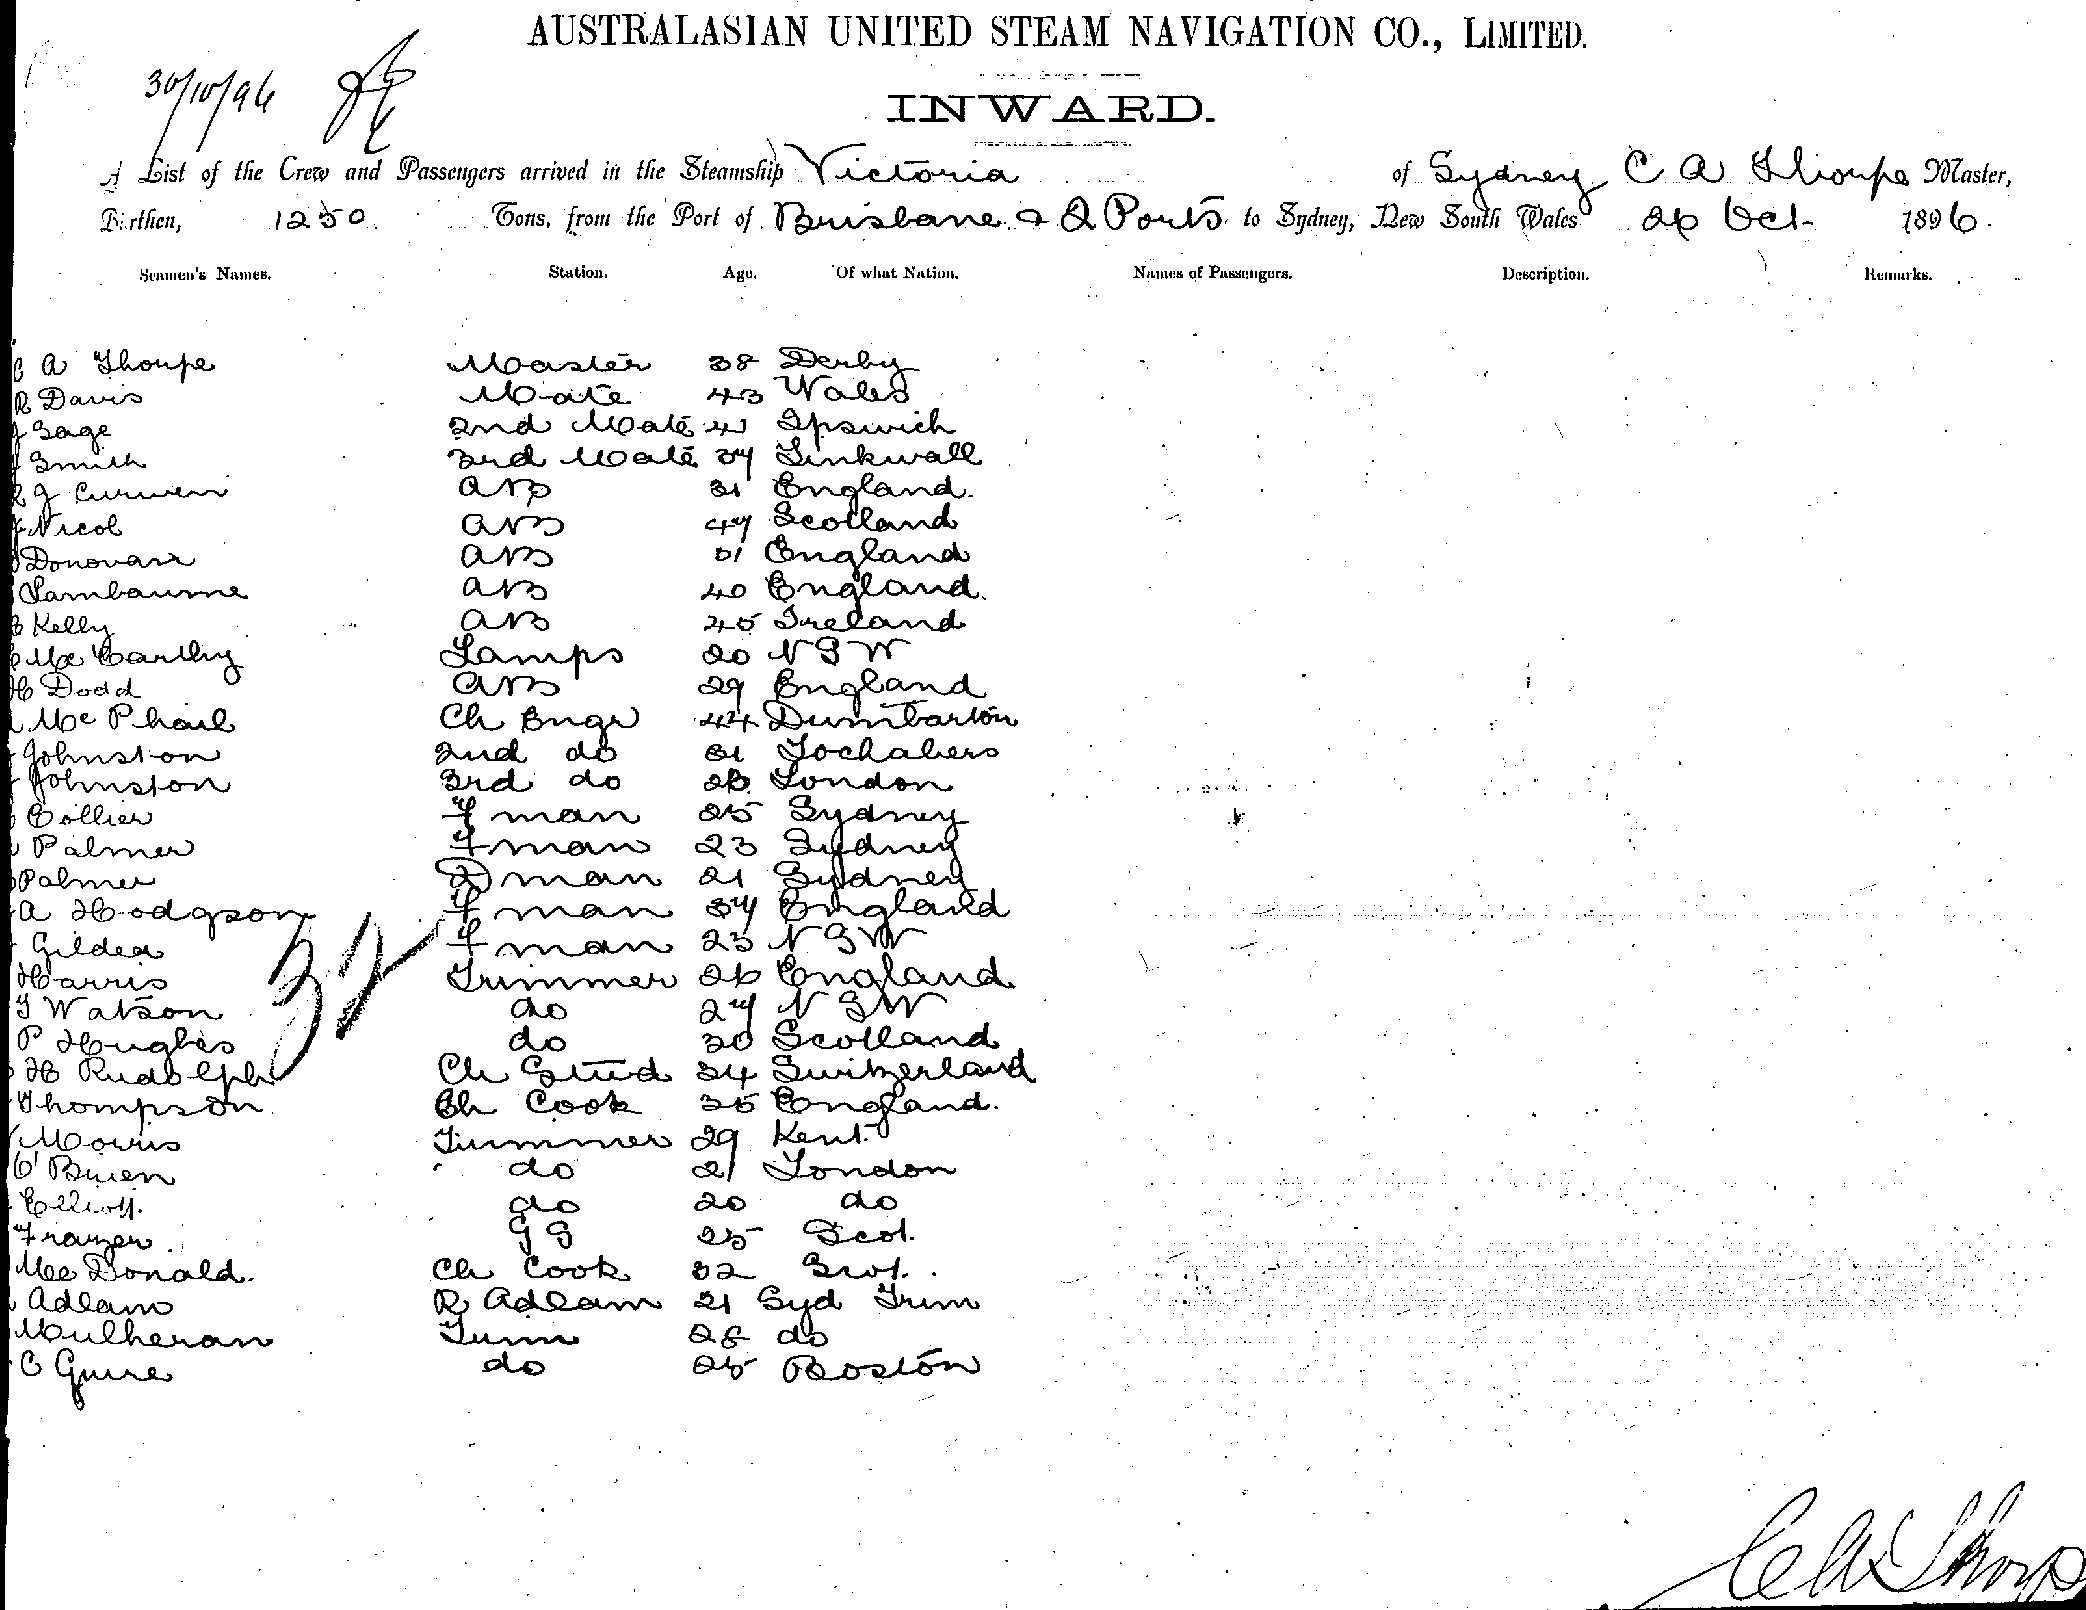 AUSTRALASIAN UNITED STEAM NAVIGATION CO., LIMITED.
30/10/96
INWARD.
A List of the Crew and Passengers arrived in the Steamship Victoria of Sydney C A Thorpe Master,
Burthen, 1250 Tons, from the Port of Brisbane & Q Ports to Sydney, New South Wales 26 Oct 1896.
Seamen's Names. Station. Age. Of what Nation. Names of Passengers. Description. Remarks.
C A Thorpe Master 38 Derby
R Davis Mate 43 Wales
Gage 2nd Mate 41 Ipswich
Smith 3rd Mate 37
J Curwen AB 31 England.
Nicol AB 47 Scotland
Donovan AB 31 England
Lambourne AB 40 England.
Kelly AB 45 Ireland
McCarthy Lamps 20 N S W
H Dodd AB 29 England
McPhail Ch Engr 44 Dumbarton
Johnston 2nd do 31 Fochabers
Johnston 3rd do 26 London
Collier F man 25 Sydney
Palmer F man 23 Sydney
Palmer D man 21 Sydney
A Hodgson F man 37 England
Gildea F man 23 N S W
32
Harris Trimmer 26 England
T Watson do 27 N S W
P Hughes do 30 Scotland
H Rudolph Ch Stwd 34 Switzerland
Thompson Ch Cook 35 England.
Morris Trimmer 29 Kent
O'Brien do 21 London
Elliott. do 20 do
Frazer. G S 25 Scot.
McDonald. Ch Cook 32 Scot.
Adlam R Adlam 21 Syd Trim
Mulheran Trim 28 do
C Guire do 25 Boston
C A Thorp